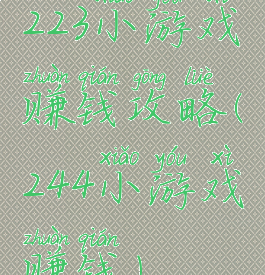 xiǎo yóu xì
223小游戏
zhuàn qián gōng lüè
赚钱攻略(
xiǎo yóu xì
244小游戏
zhuàn qián
赚钱)